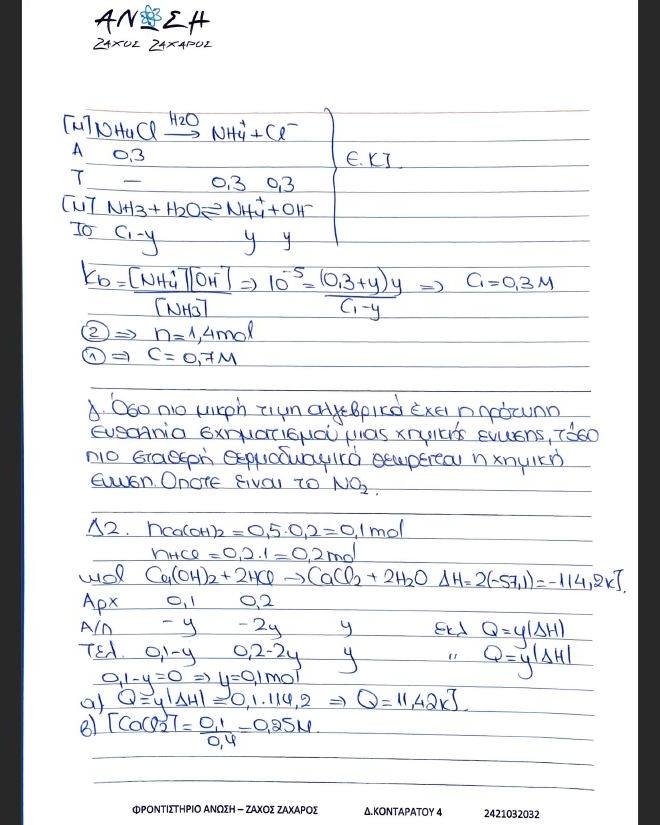 ΑΝΩΣΗ
ΖΑΧΟΣ ΖΑΧΑΡΟΣ
[M] NH4Cl H2O→ NH4+ + Cl-
A 0,3
T — 0,3 0,3
Ε.Κ.Ι.
[M] NH3 + H2O ⇌ NH4+ + OH-
ΙΟ C1-y y y
Kb = [NH4+][OH-] / [NH3] ⇒ 10^-5 = (0,3+y)y / C1-y ⇒ C1=0,3M
② ⇒ n=1,4mol
① ⇒ C=0,7M
γ. Όσο πιο μικρή τιμη αλγεβρικά έχει η πρότυπη
ενθαλπία σχηματισμού μιας χημικής ενωσης, τόσο
πιο σταθερή θερμοδυναμικά θεωρείται η χημική
ένωση. Οποτε είναι το NO2.
Δ2. nCa(OH)2 = 0,5·0,2=0,1mol
nHCl = 0,2·1=0,2mol
mol Ca(OH)2 + 2HCl → CaCl2 + 2H2O ΔΗ=2(-57,1)=-114,2kJ.
Αρχ 0,1 0,2
Α/Π -y -2y y Εκλ Q=y|ΔΗ|
Τελ. 0,1-y 0,2-2y y " Q=y|ΔΗ|
0,1-y=0 ⇒ y=0,1mol
α) Q=y|ΔΗ|=0,1·114,2 ⇒ Q=11,42kJ.
β) [CaCl2] = 0,1/0,4 = 0,25M.
ΦΡΟΝΤΙΣΤΗΡΙΟ ΑΝΩΣΗ – ΖΑΧΟΣ ΖΑΧΑΡΟΣ Δ.ΚΟΝΤΑΡΑΤΟΥ 4 2421032032